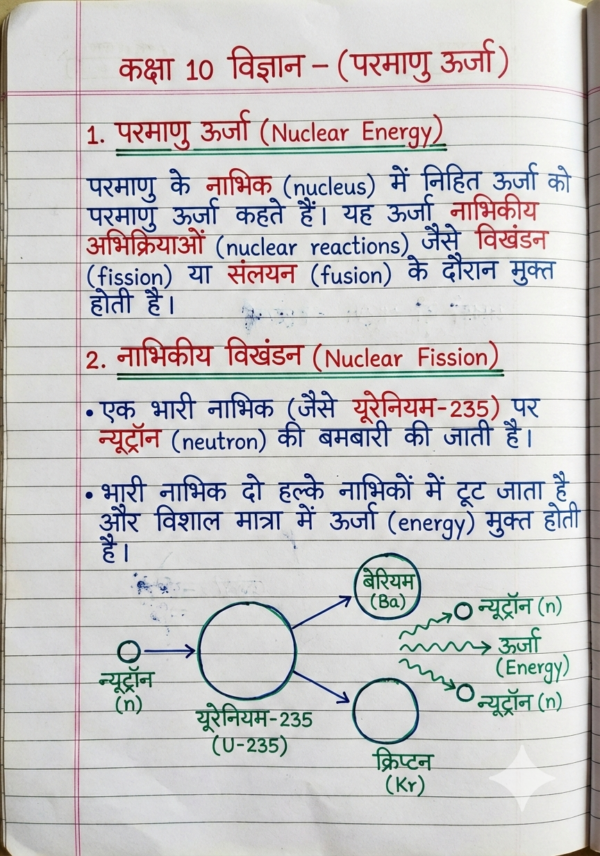 कक्षा 10 विज्ञान – (परमाणु ऊर्जा)
1. परमाणु ऊर्जा (Nuclear Energy)
परमाणु के नाभिक (nucleus) में निहित ऊर्जा को
परमाणु ऊर्जा कहते हैं। यह ऊर्जा नाभिकीय
अभिक्रियाओं (nuclear reactions) जैसे विखंडन
(fission) या संलयन (fusion) के दौरान मुक्त
होती है।
2. नाभिकीय विखंडन (Nuclear Fission)
• एक भारी नाभिक (जैसे यूरेनियम-235) पर
न्यूट्रॉन (neutron) की बमबारी की जाती है।
• भारी नाभिक दो हल्के नाभिकों में टूट जाता है
और विशाल मात्रा में ऊर्जा (energy) मुक्त होती
है।
न्यूट्रॉन
(n)
यूरेनियम-235
(U-235)
बेरियम
(Ba)
क्रिप्टन
(Kr)
न्यूट्रॉन (n)
ऊर्जा
(Energy)
न्यूट्रॉन (n)